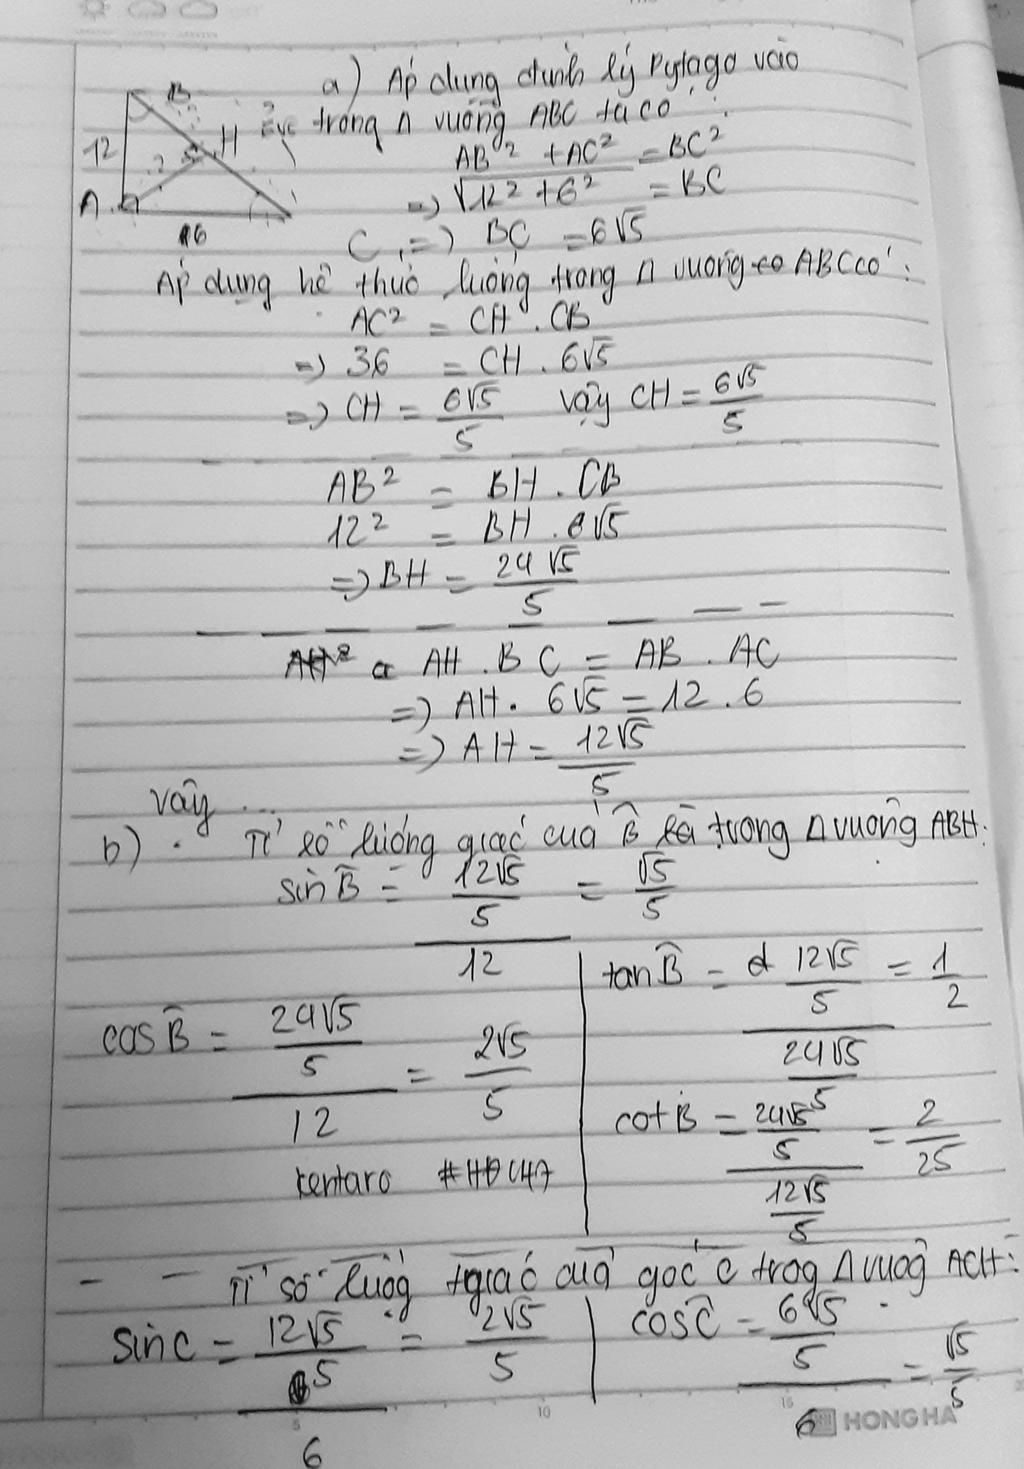 a) Áp dụng định lý Pytago vào
trong Δ vuông ABC ta có:
B
H
12
A
16
C
AB² + AC² = BC²
=> √12² + 6² = BC
=> BC = 6√5
Áp dụng hệ thức lượng trong Δ vuông ABC có:
AC² = CH . CB
=> 36 = CH . 6√5
=> CH = 6√5/5 vậy CH = 6√5/5
AB² = BH . CB
12² = BH . 6√5
=> BH = 24√5/5
AH . BC = AB . AC
=> AH . 6√5 = 12 . 6
=> AH = 12√5/5
vậy ...
b) . Tỉ số lượng giác của B̂ là trong Δ vuông ABH:
sin B̂ = 12√5/5/12 = √5/5
cos B̂ = 24√5/5/12 = 2√5/5
tan B̂ = 12√5/5/24√5/5 = 1/2
cot B̂ = 24√5/5/12√5/5 = 2/25
kentaro #HĐCH7
Tỉ số lượg giác của góc C trog Δ vuôg ACH:
sin C = 12√5/5/6 = 2√5/5
cos Ĉ = 6√5/5/6 = √5/5
5 10 15
HONG HA